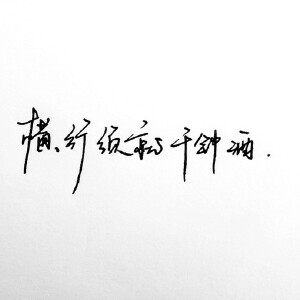 横行须就千钟酒.